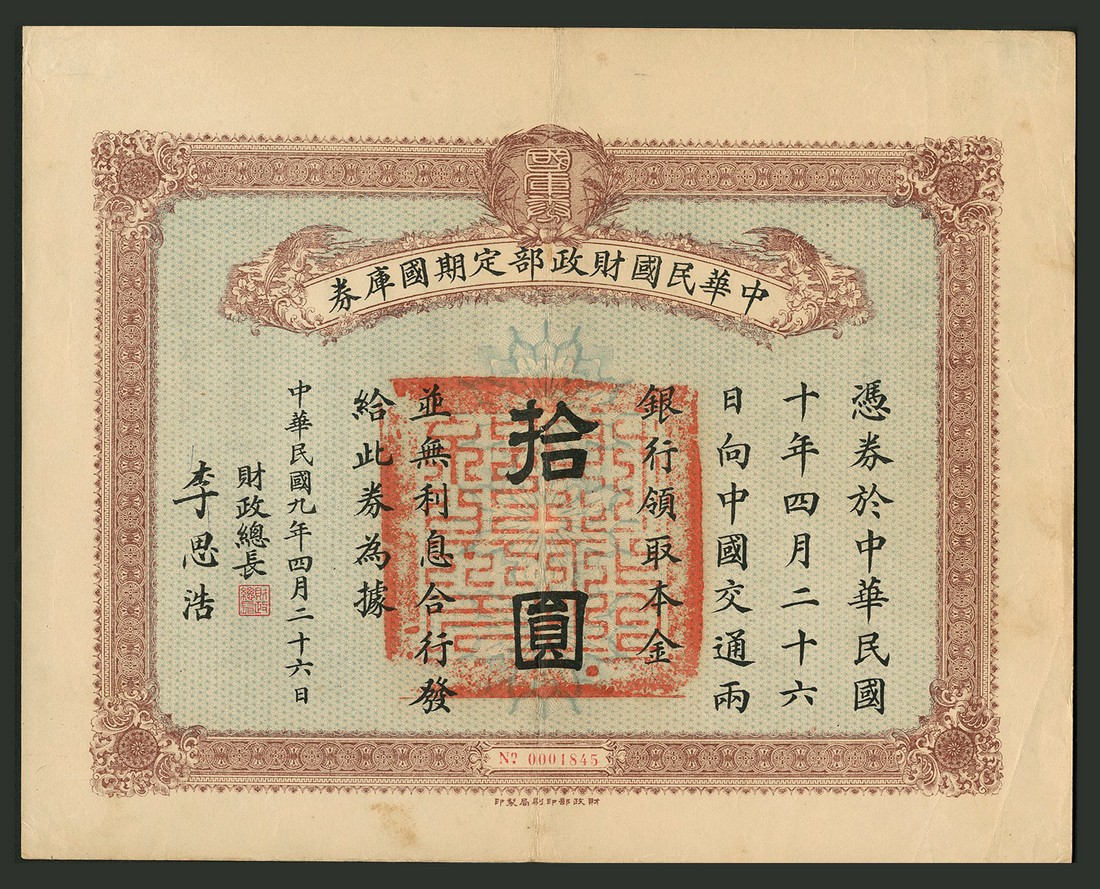 國庫券
中華民國財政部定期國庫券
憑券於中華民國
十年四月二十六
日向中國交通兩
銀行領取本金
拾圓
並無利息合行發
給此券為據
中華民國九年四月二十六日
財政總長
李思浩
Nº 0001845
財政部印刷局製印